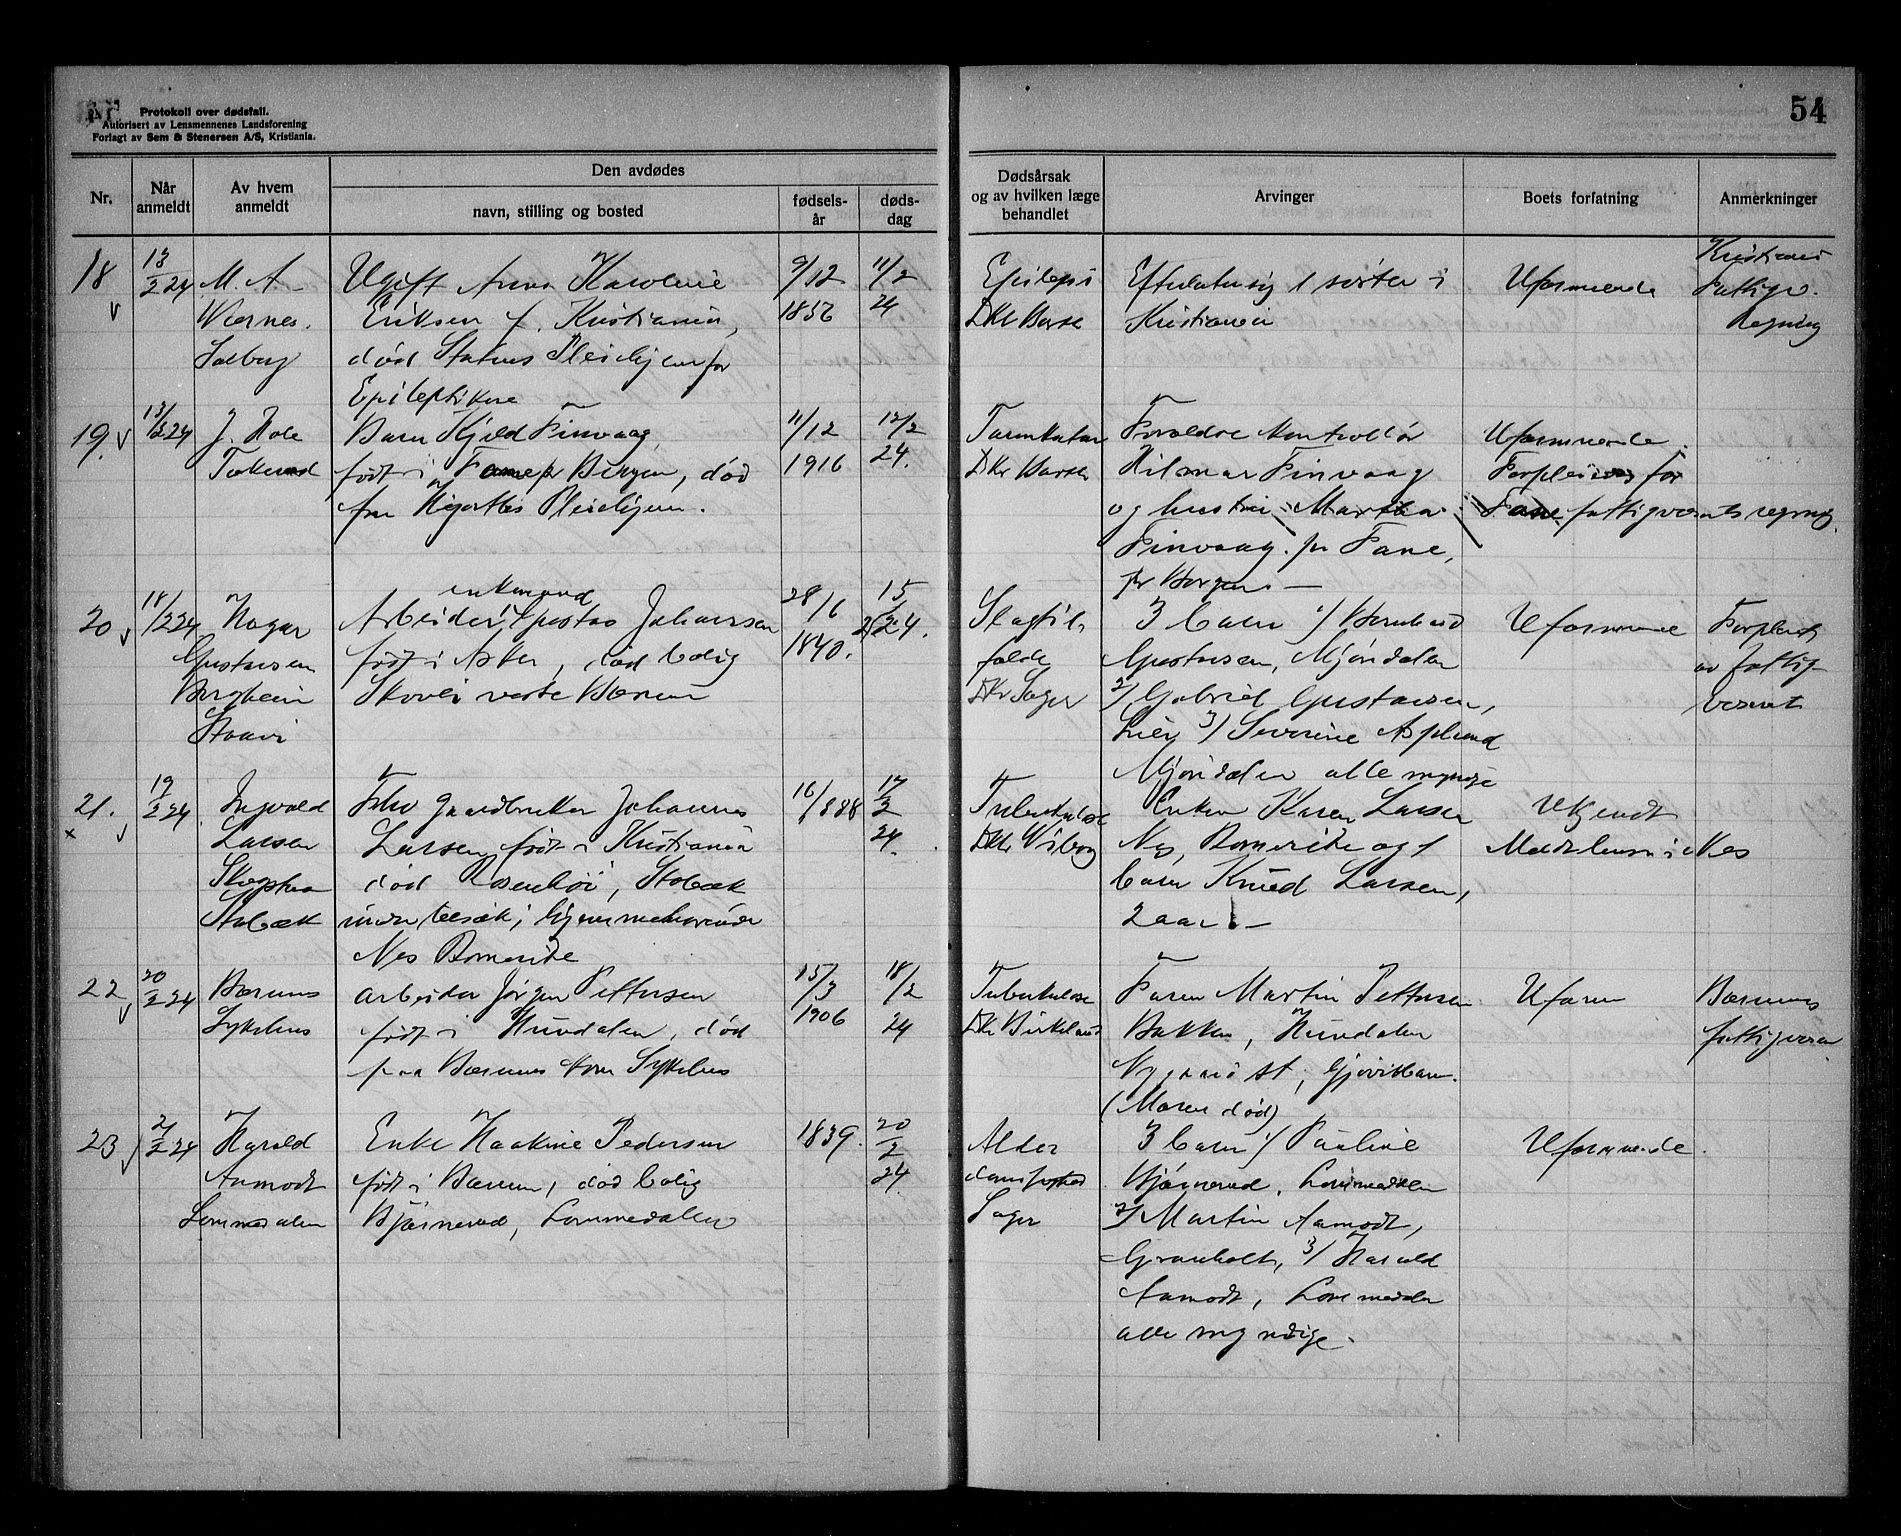 54
Protokoll over dødsfall.
Autorisert av Lensmennenes Landsforening
Forlagt av Sem & Stenersen A/S, Kristiania.
Nr.
Når anmeldt
Av hvem anmeldt
Den avdødes
navn, stilling og bosted
fødsels-år
døds-dag
Dødsårsak og av hvilken læge behandlet
Arvinger
Boets forfatning
Anmerkninger
18
13/2 24
M. A.
Wærnes.
Solberg
Ugift Anna Karoline
Eriksen f. Kristiania,
død Statens Pleiehjem for
Epileptikere
9/12
1856
11/2
24
Epilepsi
Dkt Barse
Efterlater sig 1 søster i
Kristiania
Uformuende
Kristiania
Fattigv.
Regning
19.
13/2 24
J. Hole
Tokerud
Barn Kjeld Finvaag,
født i Fane pr Bergen, død
fru Hjorths Pleiehjem.
11/12
1916
12/2
24.
Tarmkatar
Dkt Barse
Forældre Kontrollør
Hilmar Finvaag
og hustru Martha
Finvaag. pr Fane,
pr Bergen. —
Uformuende.
Forpleies for
Fane fattigvæsents regning.
20
18/2 24
Hagar
Gustavsen
Bergheim
Staavi
enkemand
Arbeider Gustav Johansen
født i Asker, død bolig
Skovli vestre Bærum
28/6
1840.
15/2 24.
Slagtilfælde
Dkt Sager
3 barn 1/ Bernhard
Gustavsen, Mjøndalen
2/ Gabriel Gustavsen,
Lier 3/ Severine Asplund
Mjøndalen alle myndige
Uformuende
Forpleiet
av fattigvæsenet
21.
x
19/2 24
Ingvald
Larsen
Stabæk
Fhv gaardbruker Johannes
Larsen født i Kristiania
død Rosenhöi, Stabæk
under besøk, hjemmehørende
Nes Romerike
16/ 1888
17/2
24.
Tuberkulose
Dkt Wiborg
Enken Karen Larsen
Nes, Romerike og 1
barn Knud Larsen,
2 aar. —
Ukjendt
Meddelelse i Nes
22
20/2 24
Bærums
Sykehus
Arbeider Jørgen Pettersen
født i Hunndalen, død
paa Bærums kom Sykehus
15/3
1906
18/2
24
Tuberkulose
Dkt Birkeland
Faren Martin Pettersen
Bakken, Hunndalen
Nygaard st, Gjøvikban.
(Moren død)
Uform
Bærums
fattigvæsen
23
21/2 24
Harald
Aamodt
Lommedalen
Enke Haakine Pedersen
født i Bærum, død bolig
Bjørnerud, Lommedalen
1839.
20/2
24
Alderdomssvakhed
Sager
3 barn 1/ Pauline
Bjørnerud, Lommedalen
2/ Martin Aamodt,
Granholt, 3/ Harald
Aamodt, Lommedalen
alle myndige.
Uformuende.